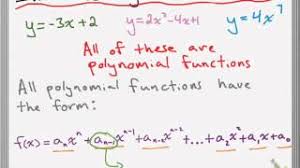 y=-3x+2 y=2x²-4x+1 y=4x⁷
All of these are
polynomial functions
All polynomial functions have
the form:
f(x)=aₙxⁿ+aₙ₋₁xⁿ⁻¹+aₙ₋₂xⁿ⁻²+...+a₂x²+a₁x+a₀